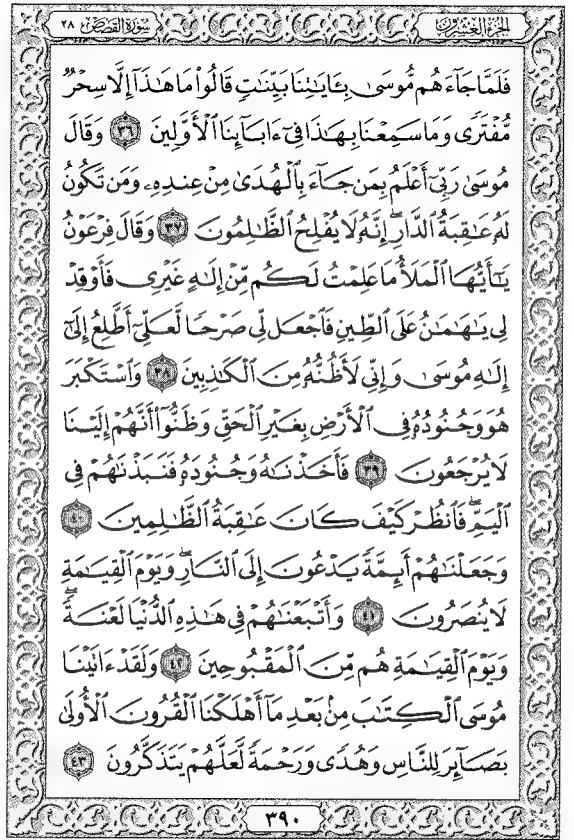 الجزء العشرون سورة القصص ٢٨
فَلَمَّا جَآءَهُم مُّوسَىٰ بِـَٔايَٰتِنَا بَيِّنَٰتٖ قَالُواْ مَا هَٰذَآ إِلَّا سِحۡرٞ
مُّفۡتَرٗى وَمَا سَمِعۡنَا بِهَٰذَا فِيٓ ءَابَآئِنَا ٱلۡأَوَّلِينَ ٣٦ وَقَالَ
مُوسَىٰ رَبِّيٓ أَعۡلَمُ بِمَن جَآءَ بِٱلۡهُدَىٰ مِنۡ عِندِهِۦ وَمَن تَكُونُ
لَهُۥ عَٰقِبَةُ ٱلدَّارِۚ إِنَّهُۥ لَا يُفۡلِحُ ٱلظَّٰلِمُونَ ٣٧ وَقَالَ فِرۡعَوۡنُ
يَٰٓأَيُّهَا ٱلۡمَلَأُ مَا عَلِمۡتُ لَكُم مِّنۡ إِلَٰهٍ غَيۡرِي فَأَوۡقِدۡ
لِي يَٰهَٰمَٰنُ عَلَى ٱلطِّينِ فَٱجۡعَل لِّي صَرۡحٗا لَّعَلِّيٓ أَطَّلِعُ إِلَىٰٓ
إِلَٰهِ مُوسَىٰ وَإِنِّي لَأَظُنُّهُۥ مِنَ ٱلۡكَٰذِبِينَ ٣٨ وَٱسۡتَكۡبَرَ
هُوَ وَجُنُودُهُۥ فِي ٱلۡأَرۡضِ بِغَيۡرِ ٱلۡحَقِّ وَظَنُّوٓاْ أَنَّهُمۡ إِلَيۡنَا
لَا يُرۡجَعُونَ ٣٩ فَأَخَذۡنَٰهُ وَجُنُودَهُۥ فَنَبَذۡنَٰهُمۡ فِي
ٱلۡيَمِّۖ فَٱنظُرۡ كَيۡفَ كَانَ عَٰقِبَةُ ٱلظَّٰلِمِينَ ٤٠
وَجَعَلۡنَٰهُمۡ أَئِمَّةٗ يَدۡعُونَ إِلَى ٱلنَّارِۖ وَيَوۡمَ ٱلۡقِيَٰمَةِ
لَا يُنصَرُونَ ٤١ وَأَتۡبَعۡنَٰهُمۡ فِي هَٰذِهِ ٱلدُّنۡيَا لَعۡنَةٗۖ
وَيَوۡمَ ٱلۡقِيَٰمَةِ هُم مِّنَ ٱلۡمَقۡبُوحِينَ ٤٢ وَلَقَدۡ ءَاتَيۡنَا
مُوسَى ٱلۡكِتَٰبَ مِنۢ بَعۡدِ مَآ أَهۡلَكۡنَا ٱلۡقُرُونَ ٱلۡأُولَىٰ
بَصَآئِرَ لِلنَّاسِ وَهُدٗى وَرَحۡمَةٗ لَّعَلَّهُمۡ يَتَذَكَّرُونَ ٤٣
٣٩٠